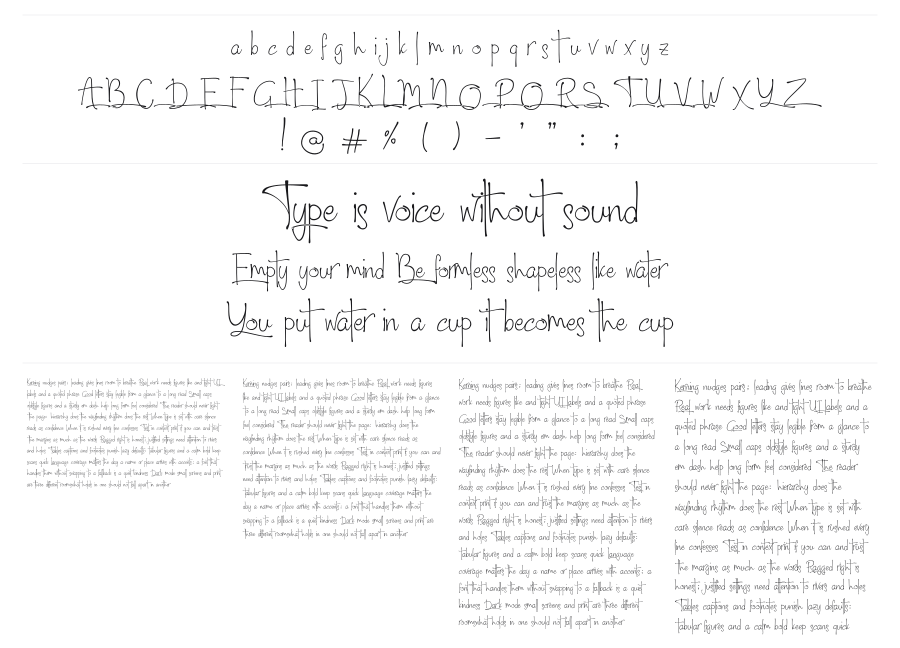 a b c d e f g h i j k l m n o p q r s t u v w x y z
A B C D E F G H I J K L M N O P Q R S T U V W X Y Z
! @ # % ( ) - ' " : ;
Type is voice without sound
Empty your mind Be formless shapeless like water
You put water in a cup it becomes the cup
Kerning nudges pairs: leading gives lines room to breathe Real work needs figures like and tight UI
labels and a quoted phrase Good letters stay legible from a glance to a long read Small caps
oldstyle figures and a sturdy em dash help long form feel considered "The reader should never fight
the page: hierarchy does the wayfinding rhythm does the rest When type is set with care silence
reads as confidence When it is rushed every line confesses "Test in context print if you can and trust
the margins as much as the words Ragged right is honest; justified settings need attention to rivers
and holes "Tables captions and footnotes punish lazy defaults: tabular figures and a calm bold keep
scans quick language coverage matters the day a name or place arrives with accents: a font that
handles them without swapping to a fallback is a quiet kindness Dark mode small screens and print
are three different rooms what holds in one should not fall apart in another
Kerning nudges pairs: leading gives lines room to breathe Real work needs figures
like and tight UI labels and a quoted phrase Good letters stay legible from a glance
to a long read Small caps oldstyle figures and a sturdy em dash help long form
feel considered "The reader should never fight the page: hierarchy does the
wayfinding rhythm does the rest When type is set with care silence reads as
confidence When it is rushed every line confesses "Test in context print if you can and
trust the margins as much as the words Ragged right is honest; justified settings
need attention to rivers and holes "Tables captions and footnotes punish lazy defaults:
tabular figures and a calm bold keep scans quick language coverage matters the
day a name or place arrives with accents: a font that handles them without
swapping to a fallback is a quiet kindness Dark mode small screens and print are
three different rooms what holds in one should not fall apart in another
Kerning nudges pairs: leading gives lines room to breathe Real
work needs figures like and tight UI labels and a quoted phrase
Good letters stay legible from a glance to a long read Small caps
oldstyle figures and a sturdy em dash help long form feel considered
"The reader should never fight the page: hierarchy does the
wayfinding rhythm does the rest When type is set with care silence
reads as confidence When it is rushed every line confesses "Test in
context print if you can and trust the margins as much as the
words Ragged right is honest; justified settings need attention to rivers
and holes "Tables captions and footnotes punish lazy defaults:
tabular figures and a calm bold keep scans quick language
coverage matters the day a name or place arrives with accents: a
font that handles them without swapping to a fallback is a quiet
kindness Dark mode small screens and print are three different
rooms what holds in one should not fall apart in another
Kerning nudges pairs: leading gives lines room to breathe
Real work needs figures like and tight UI labels and a
quoted phrase Good letters stay legible from a glance to
a long read Small caps oldstyle figures and a sturdy
em dash help long form feel considered "The reader
should never fight the page: hierarchy does the
wayfinding rhythm does the rest When type is set with
care silence reads as confidence When it is rushed every
line confesses "Test in context print if you can and trust
the margins as much as the words Ragged right is
honest; justified settings need attention to rivers and holes
"Tables captions and footnotes punish lazy defaults:
tabular figures and a calm bold keep scans quick